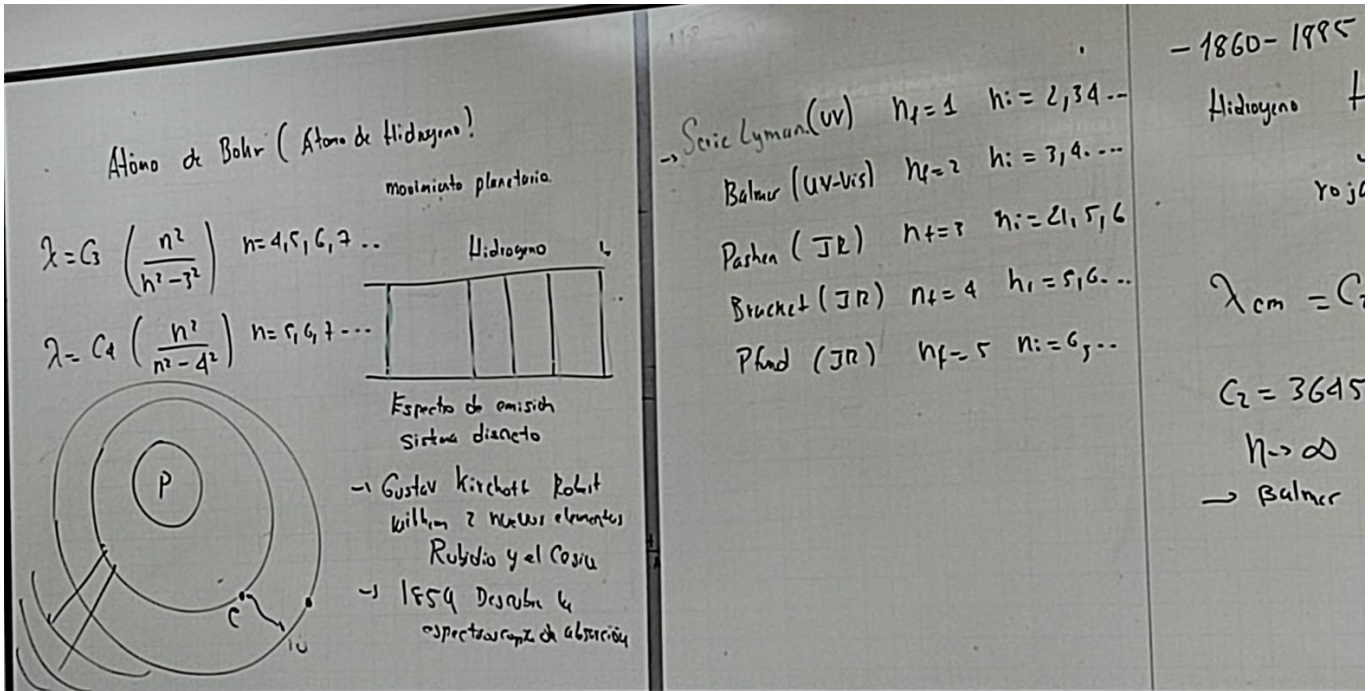 Atómo de Bohr (Átomo de Hidrogeno)
movimiento planetario.
λ = C3 (n²/n²-3²) n=4,5,6,7..
λ = C4 (n²/n²-4²) n=5,6,7---
Hidrogeno
P
e
Espectro de emisión
sistema discreto
→ Gustav Kirchoff Robert
Wilhem 2 nuevos elementos
Rubidio y el Cesio
→ 1859 Descubre la
espectroscopia de absorción
→ Serie Lyman (UV) nf=1 ni=2,34..
Balmer (UV-Vis) nf=2 ni=3,4....
Pashen (IR) nf=3 ni=4,5,6
Bracket (IR) nf=4 ni=5,6...
Pfund (IR) nf=5 ni=6,..
-1860-1885
Hidrogeno
λcm = C
C2 = 3645
n→∞
→ Balmer